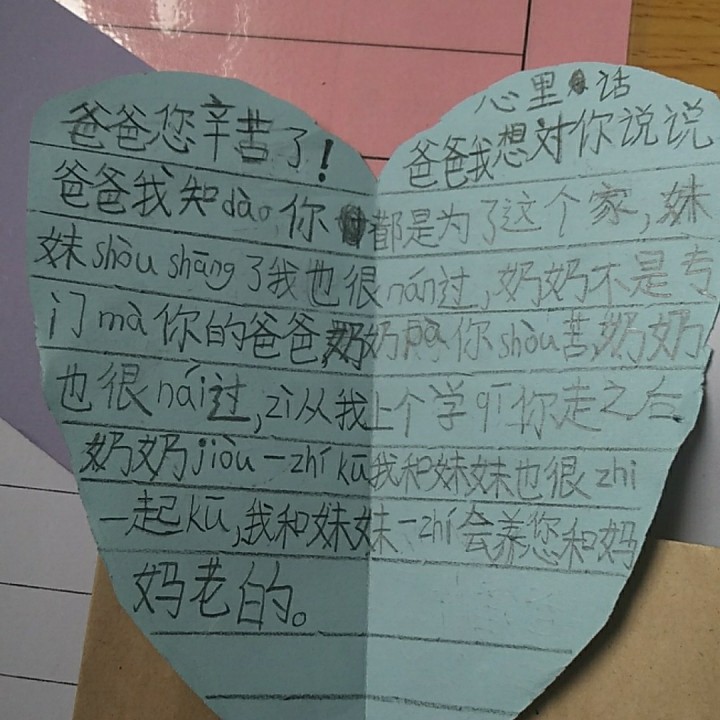 心里话
爸爸您辛苦了!爸爸我想对你说说
爸爸我知dào你都是为了这个家,妹
妹shòu shāng了我也很nán过,奶奶不是专
门mà你的爸爸,奶奶pà你shòu苦,奶奶
也很nái过,zì从我上个学qī你走之后
奶奶jiòu一zhí kū我和妹妹也很zhi
一起kū,我和妹妹一zhí会养您和妈
妈老的。